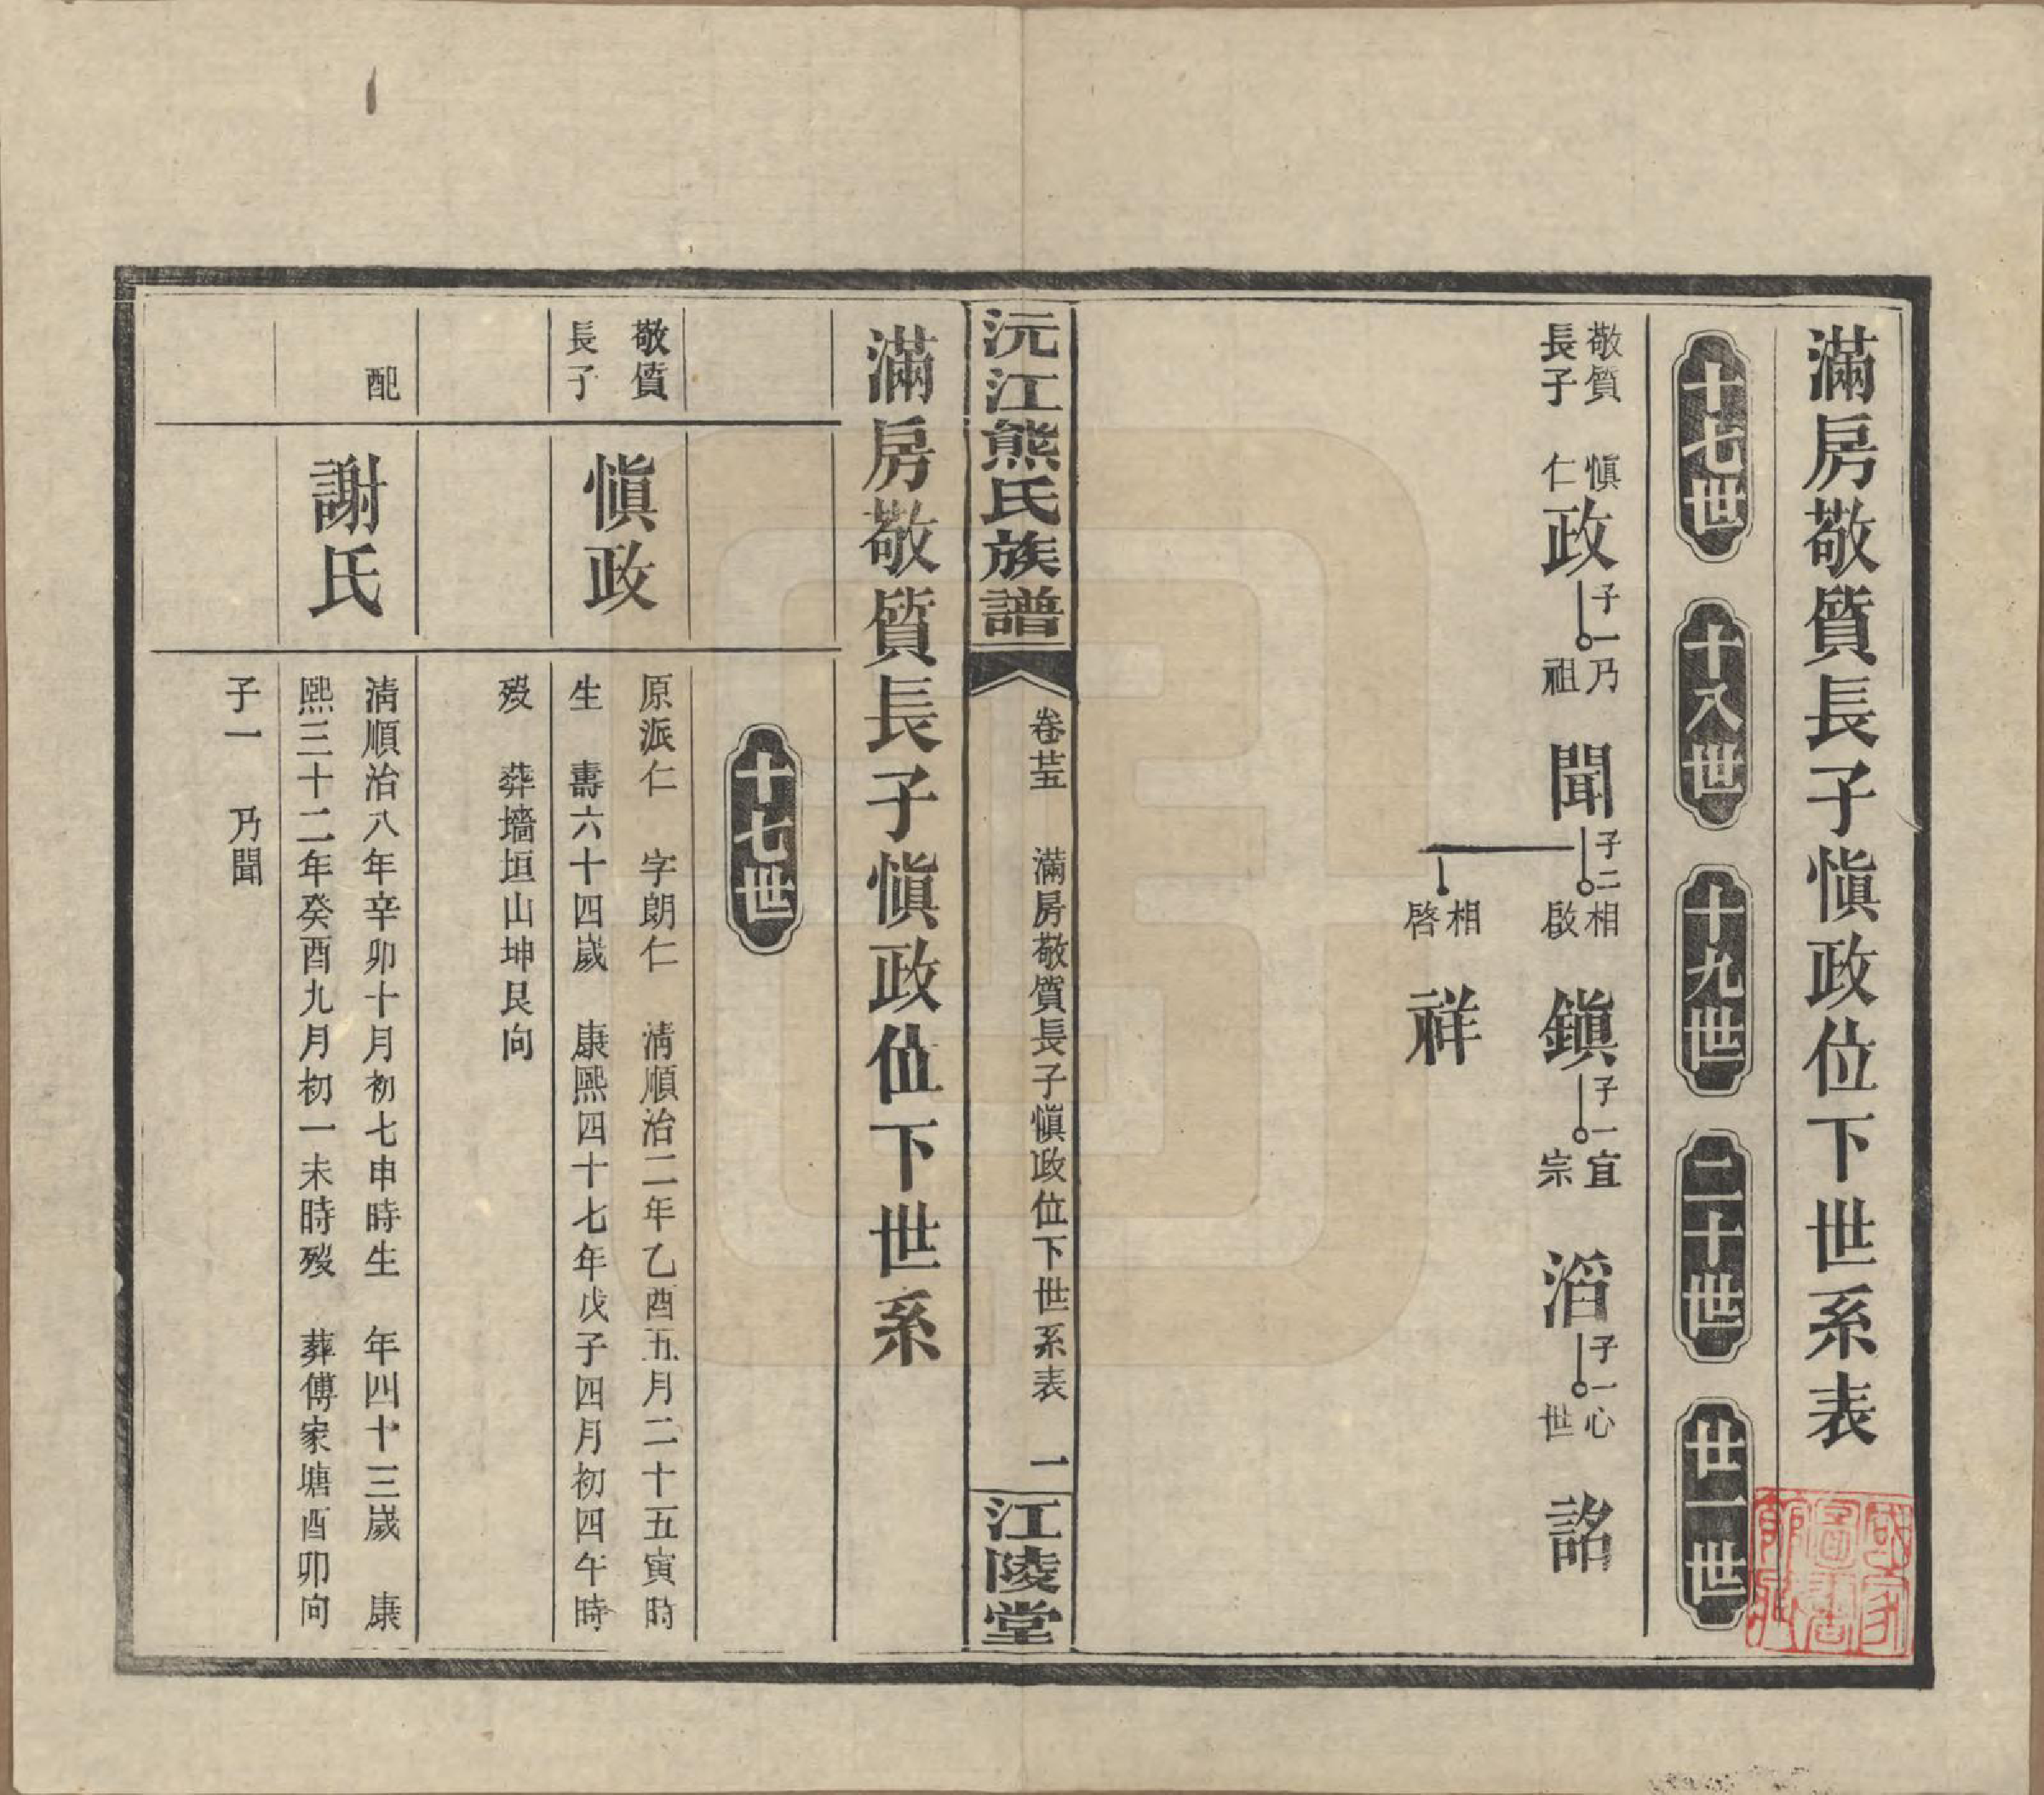 滿房敬質長子慎政位下世系表
十七世
十八世
十九世
二十世
廿一世
敬質
長子
慎
仁
政
子一
乃
祖
聞
子二
相
啟
鎮
子一
宜
宗
滔
子一
心
世
詺
相
啓
祥
沅江熊氏族譜
卷廿五 滿房敬質長子慎政位下世系表 一
江陵堂
滿房敬質長子慎政位下世系
十七世
敬質
長子
慎政
原派仁 字朗仁 清順治二年乙酉五月二十五寅時
生 壽六十四歲 康熙四十七年戊子四月初四午時
歿 葬墻垣山坤艮向
配
謝氏
清順治八年辛卯十月初七申時生 年四十三歲 康
熙三十二年癸酉九月初一未時歿 葬傅家塘酉卯向
子一 乃聞
國家
圖書
館藏